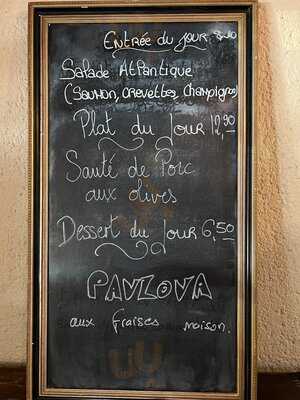 Entrée du jour
Salade Atlantique
(Saumon, crevettes, champignons)
Plat du Jour 12,90
Sauté de Porc
aux olives
Dessert du Jour 6,50
PAVLOVA
aux fraises maison.